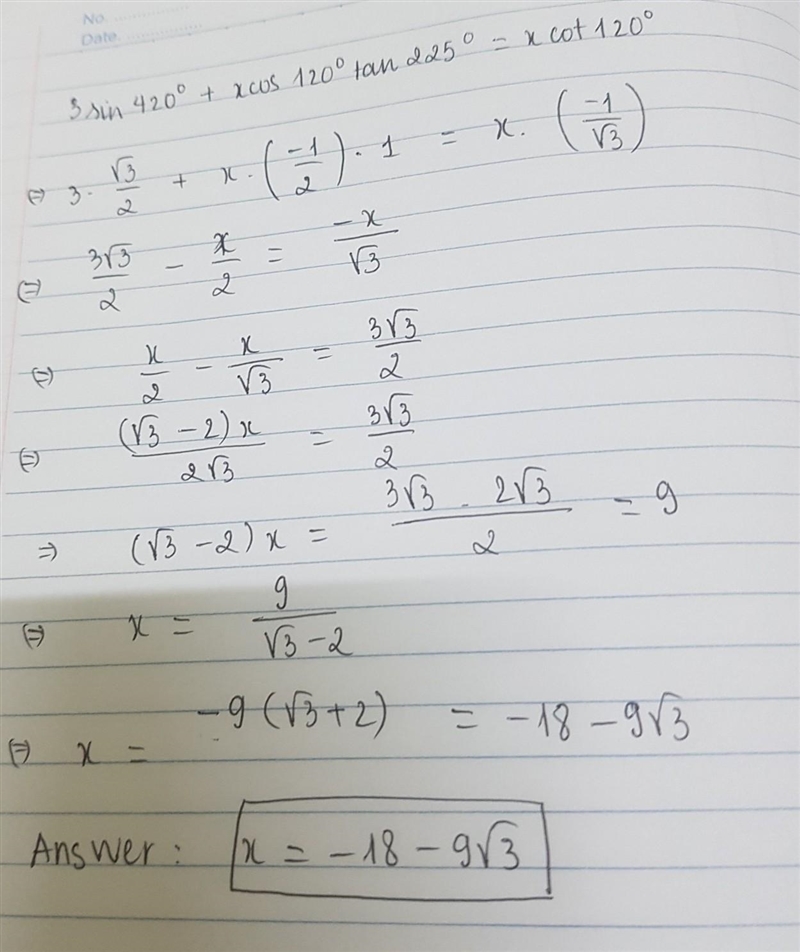 No. ..................
Date. ..................
3 sin 420° + x cos 120° tan 225° = x cot 120°
(=) 3 · √3/2 + x · (-1/2) · 1 = x · (-1/√3)
(=) 3√3/2 - x/2 = -x/√3
(=) x/2 - x/√3 = 3√3/2
(=) (√3 - 2)x/2√3 = 3√3/2
=) (√3 - 2)x = 3√3 · 2√3/2 = 9
(=) x = 9/√3 - 2
(=) x = -9(√3 + 2) = -18 - 9√3
Answer : x = -18 - 9√3